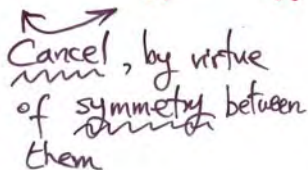 Cancel, by virtue
of symmetry between
them